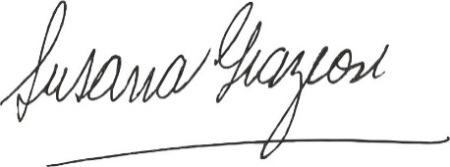 Susana Graziosi